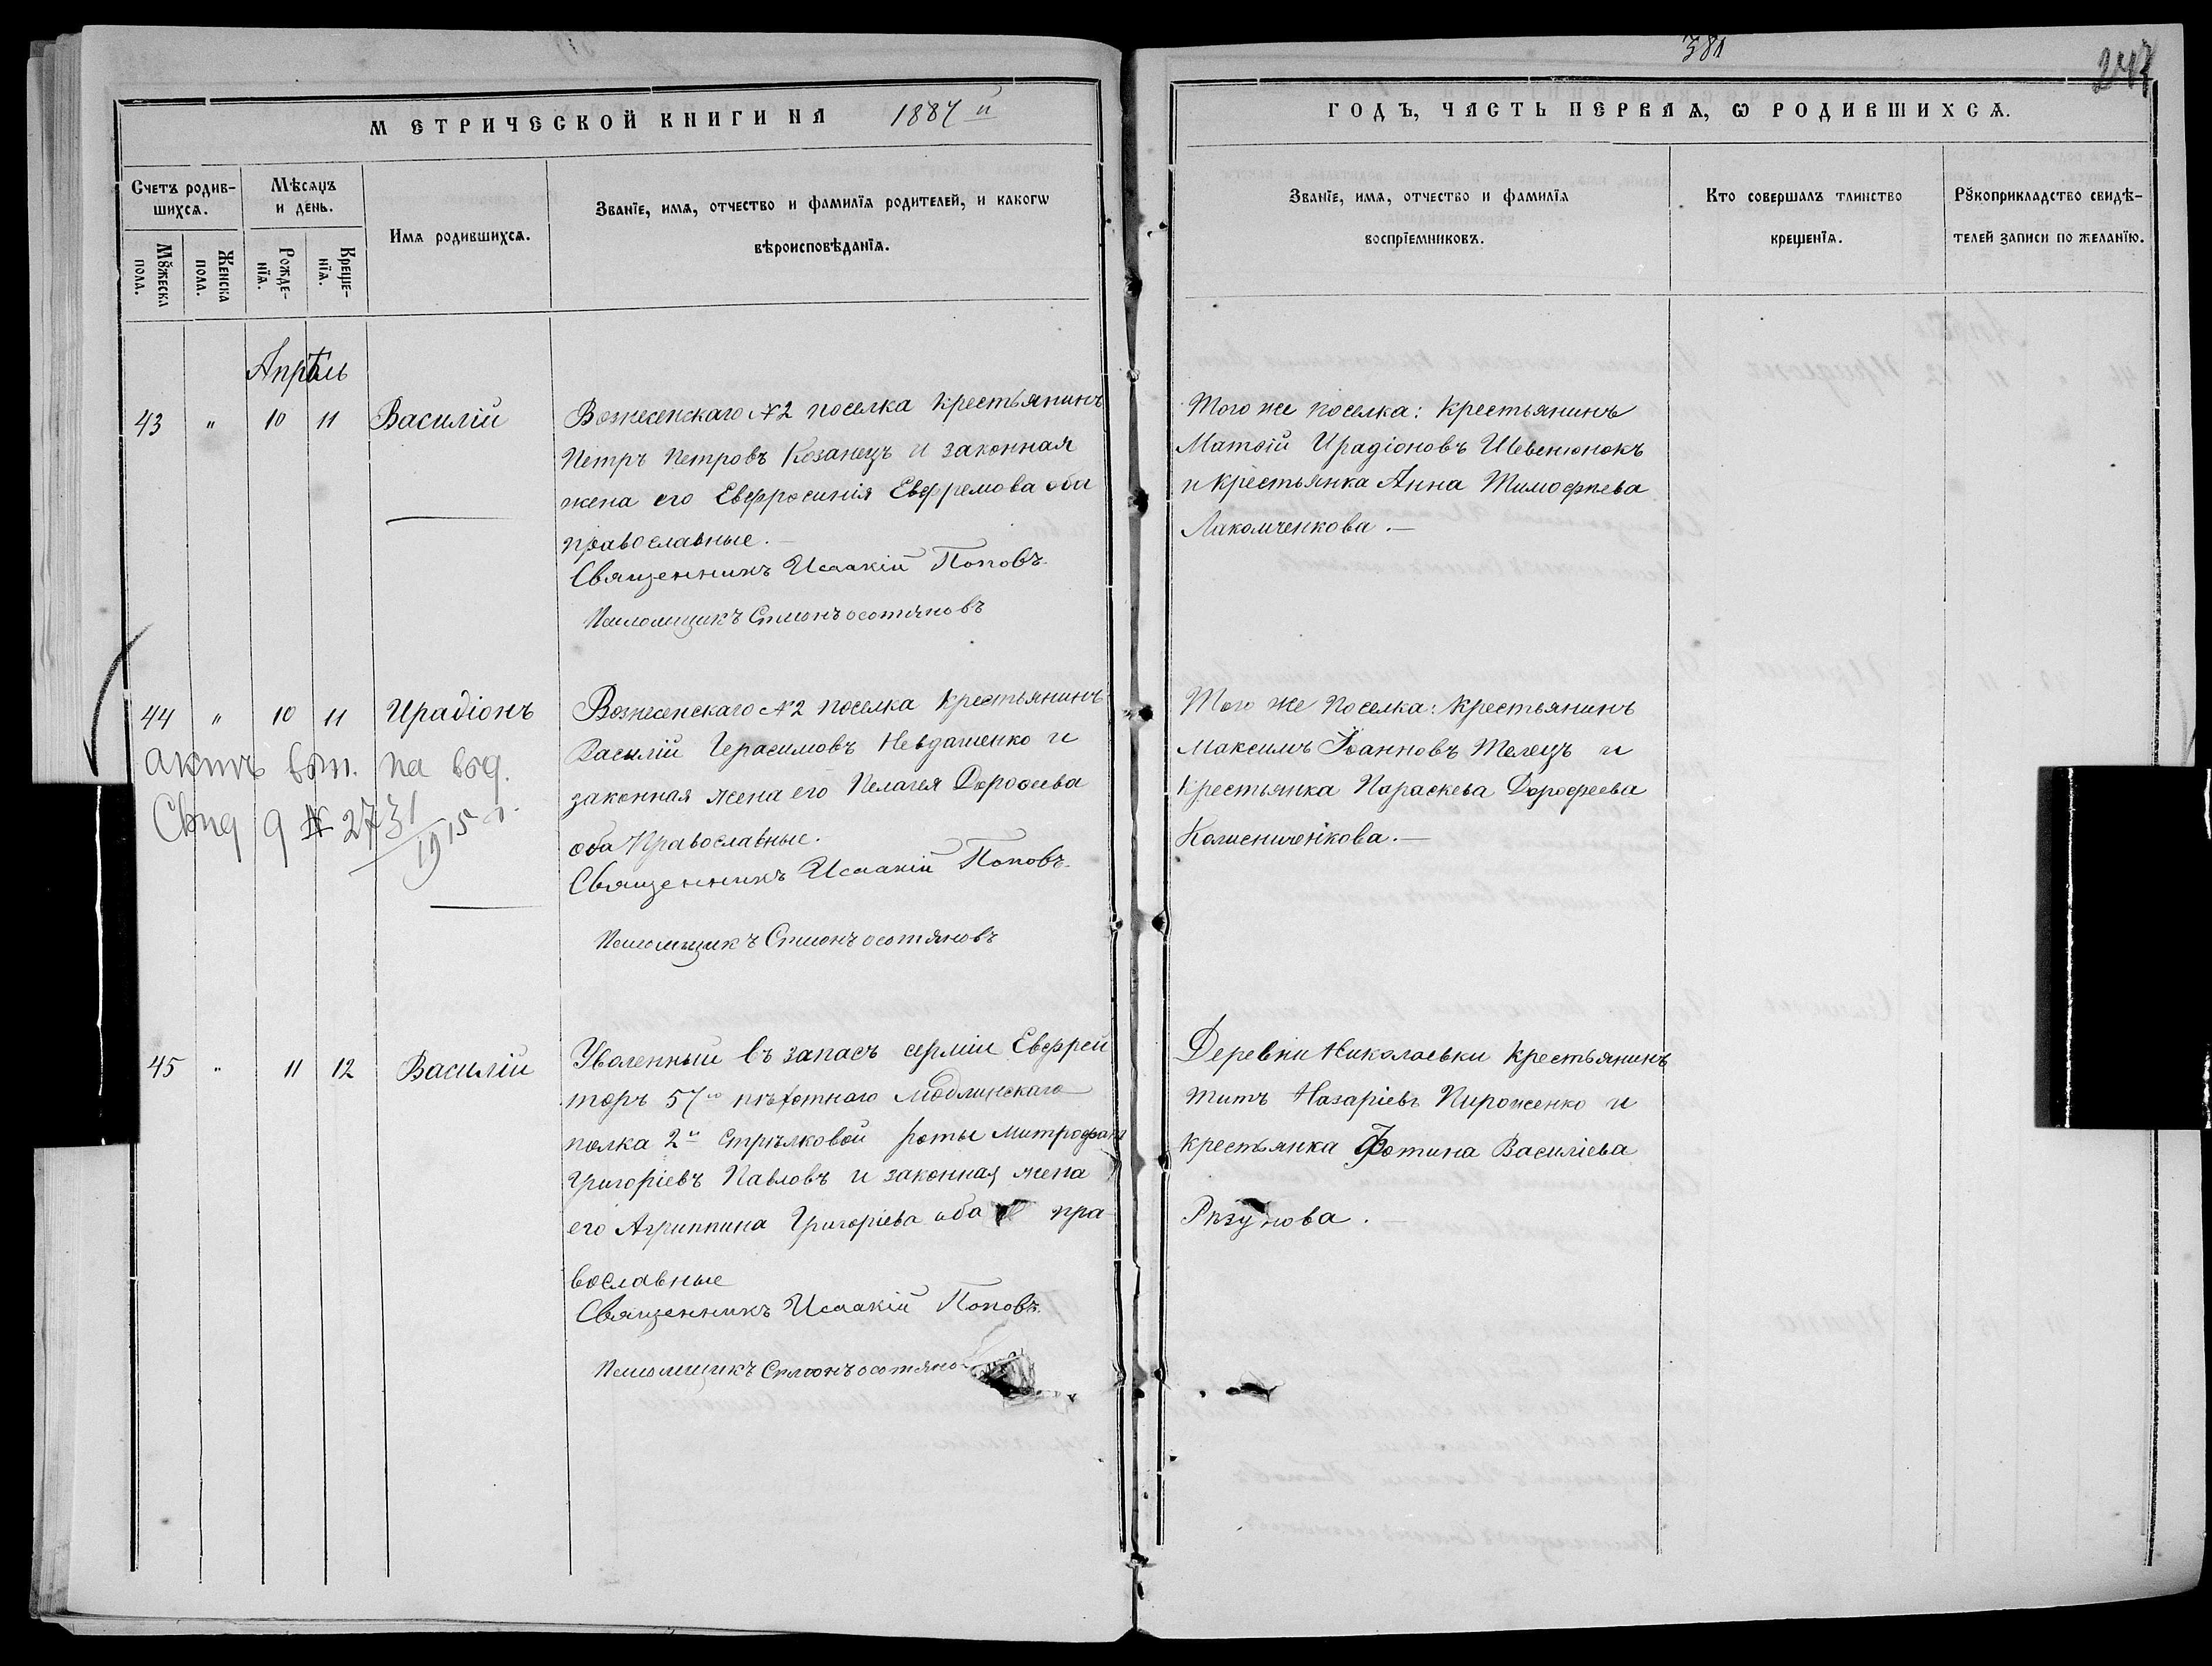 381
МЕТРИЧЕСКОЙ КНИГИ НА 1887 й
ГОДЪ, ЧАСТЬ ПЕРВАѦ, Ѡ РОДИВШИХСѦ.
Счетъ родив-
шихсѧ.
Мꙋжеска
пола.
Женска
пола.
Мѣсѧцъ
и день.
Рожде-
нїѧ.
Креще-
нїѧ.
Имѧ родившихсѧ.
Званїе, имѧ, отчество и фамилїѧ родителей, и какогѡ
вѣроисповѣданїѧ.
Званїе, имѧ, отчество и фамилїѧ
воспрїемниковъ.
Кто совершалъ таинство
крещенїѧ.
Рꙋкоприкладство свидѣ-
телей записи по желанїю.
Апрѣль
43 " 10 11 Василій
Вознесенскаго №2 поселка крестьянинъ
Петръ Петровъ Козанецъ и законная
жена его Евфросинія Евфремова оба
православные.
Священникъ Исаакій Поповъ.
Псаломщикъ
Того же поселка: крестьянинъ
Матѳій Ирадіоновъ Шевенюнокъ
и крестьянка Анна Тимофѣева
Лакомченкова.—
44 " 10 11 Ирадіонъ
Вознесенскаго №2 поселка крестьянинъ
Василій Герасимовъ Невдашенко и
законная жена его Пелагея Дороѳеева
оба Православные.
Священникъ Исаакій Поповъ.
Псаломщикъ
актъ на
№ 2731
1915 г.
Того же поселка: крестьянинъ
Максимъ Іоанновъ Телецъ и
крестьянка Параскева Дорофеева
Колисниченкова.—
45 " 11 12 Василій
Уволенный въ запасъ арміи Евфрей
торъ 57го пѣхотнаго Модлинскаго
полка 2й стрѣлковой роты Митрофанъ
Григоріевъ Павловъ и законная жена
его Агриппина Григоріева оба пра-
вославные
Священникъ Исаакій Поповъ.
Псаломщикъ
Деревни Николаевки крестьянинъ
Титъ Назаріевъ Пироженко и
крестьянка Фотина Василіева
Рѣзунова.—